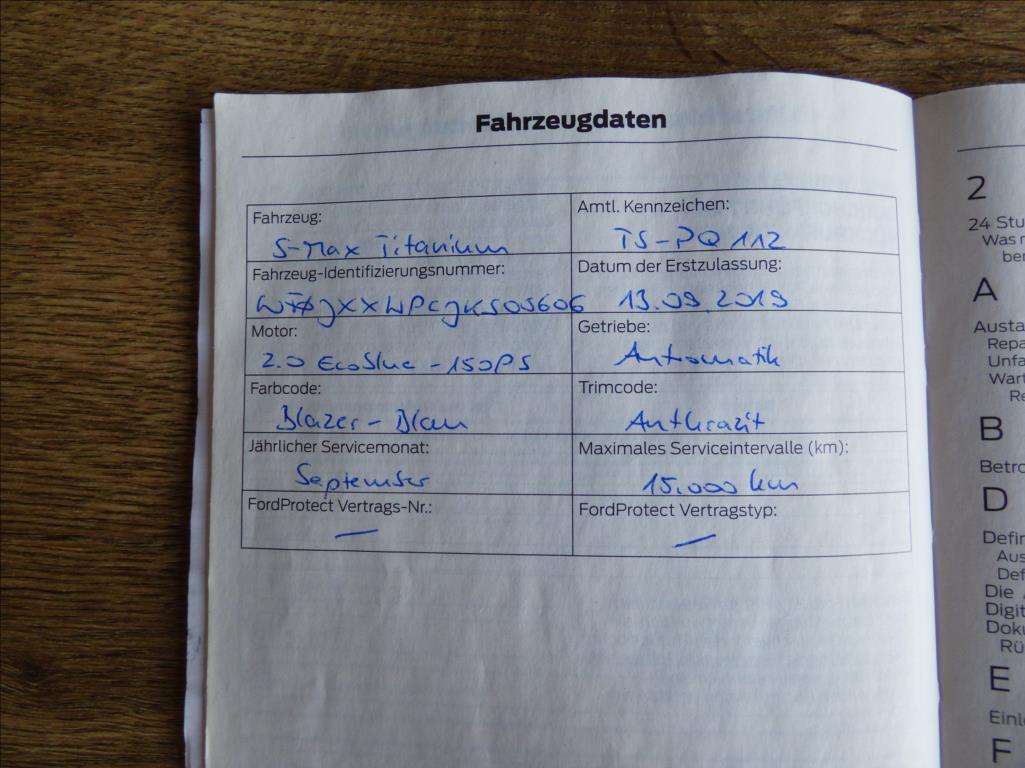 Fahrzeugdaten
Fahrzeug:
S-Max Titanium
Amtl. Kennzeichen:
TS-PQ 112
Fahrzeug-Identifizierungsnummer:
WF0JXXWPCJKS09606
Datum der Erstzulassung:
13.09.2019
Motor:
2.0 EcoBlue - 150PS
Getriebe:
Automatik
Farbcode:
Blazer - Blau
Trimcode:
Anthrazit
Jährlicher Servicemonat:
September
Maximales Serviceintervalle (km):
15.000 km
FordProtect Vertrags-Nr.:
—
FordProtect Vertragstyp:
—
2
24 Stu
Was
ber
A
Austa
Repa
Unfa
Wart
Re
B
Betro
D
Defin
Aus
Def
Die
Digit
Doku
Rü
E
Einle
F